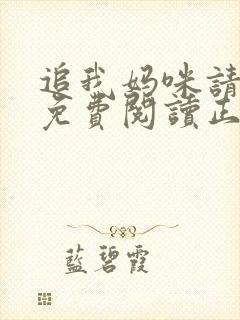 追我妈咪請
免費閱讀正
藍碧霞